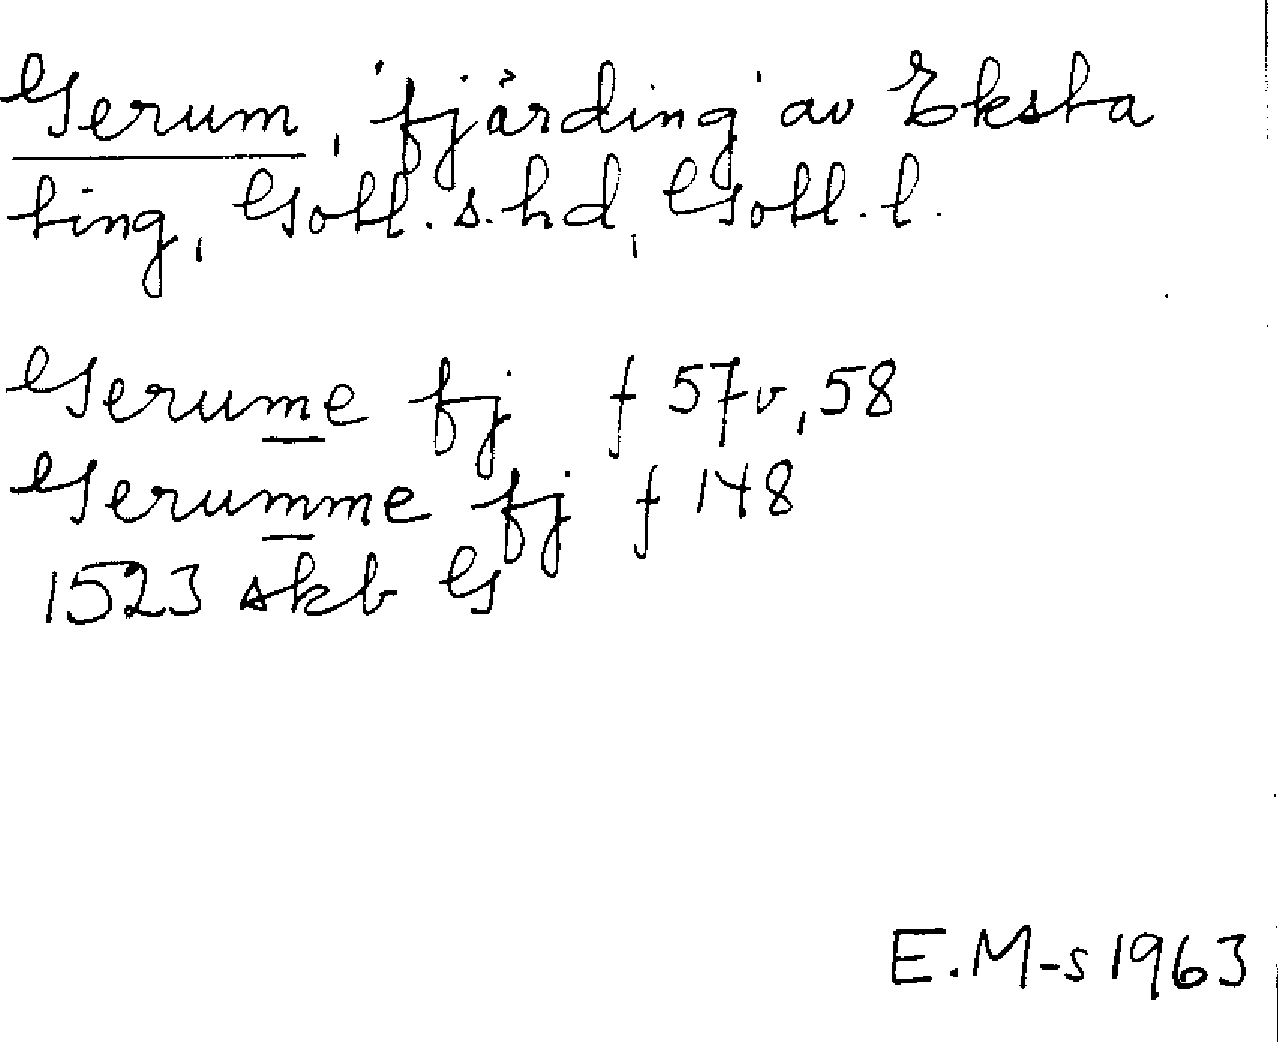 Gerum, fjärding av Eksta
ting, Gotl. s. hd, Gotl. l.
Gerume fj f 57v, 58
Gerumme fj f 148
1523 skb G
E.M-s 1963